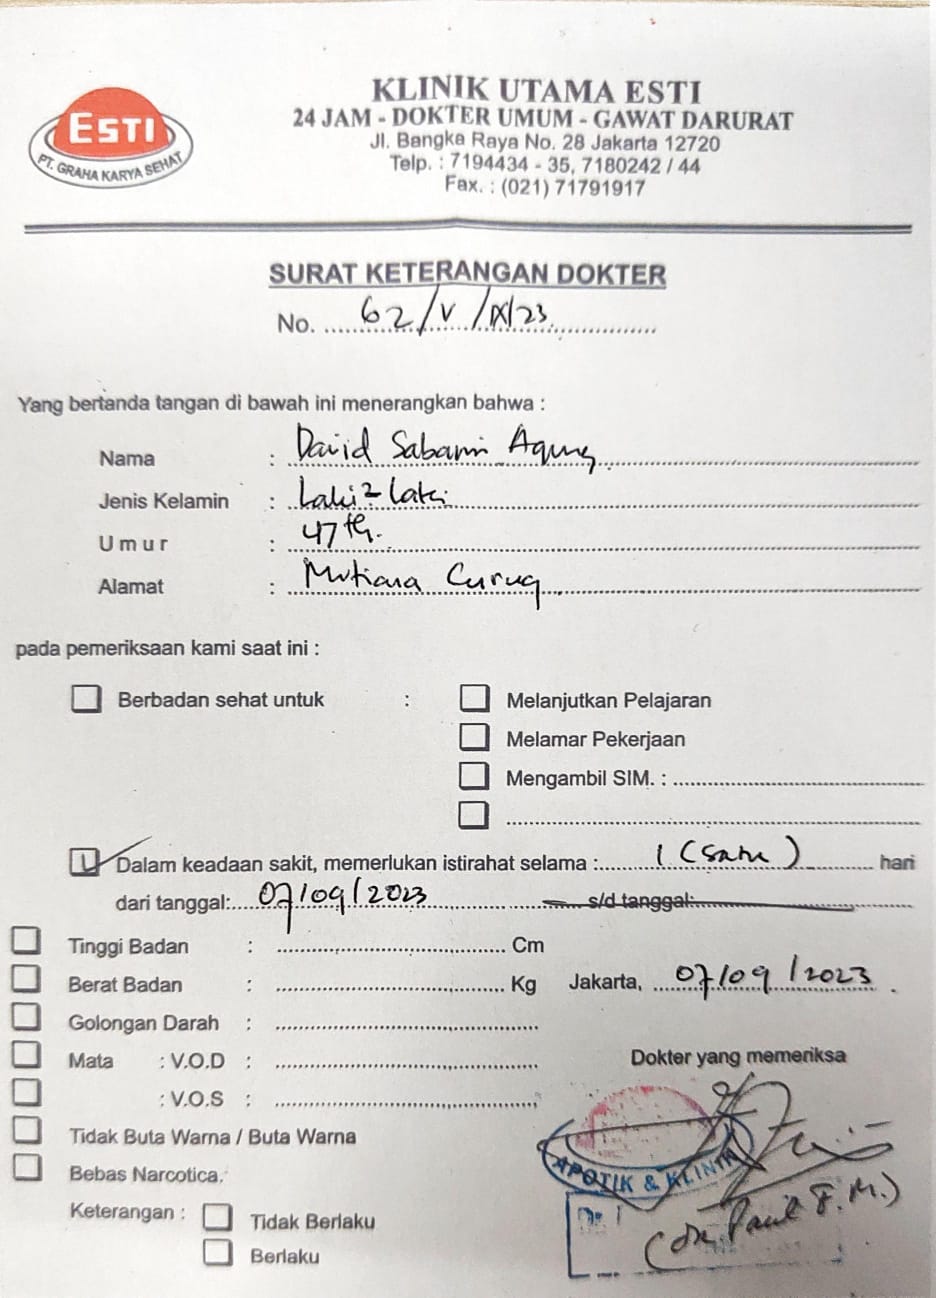 ESTI
PT. GRAHA KARYA SEHAT
KLINIK UTAMA ESTI
24 JAM - DOKTER UMUM - GAWAT DARURAT
Jl. Bangka Raya No. 28 Jakarta 12720
Telp. : 7194434 - 35, 7180242 / 44
Fax. : (021) 71791917
SURAT KETERANGAN DOKTER
No. 62/V/IX/23
Yang bertanda tangan di bawah ini menerangkan bahwa :
Nama : David Sabami Agung
Jenis Kelamin : Laki2 laki
Umur : 47 th.
Alamat : Mutiara Curug
pada pemeriksaan kami saat ini :
Berbadan sehat untuk : Melanjutkan Pelajaran
Melamar Pekerjaan
Mengambil SIM. :
Dalam keadaan sakit, memerlukan istirahat selama : 1 (satu) hari
dari tanggal: 07/09/2023 s/d tanggal:
Tinggi Badan : Cm
Berat Badan : Kg Jakarta, 07/09/2023
Golongan Darah :
Mata : V.O.D :
Dokter yang memeriksa
: V.O.S :
Tidak Buta Warna / Buta Warna
APOTIK & KLINIK
Bebas Narcotica.
Keterangan : Tidak Berlaku
(dr. Paul F. M.)
Berlaku